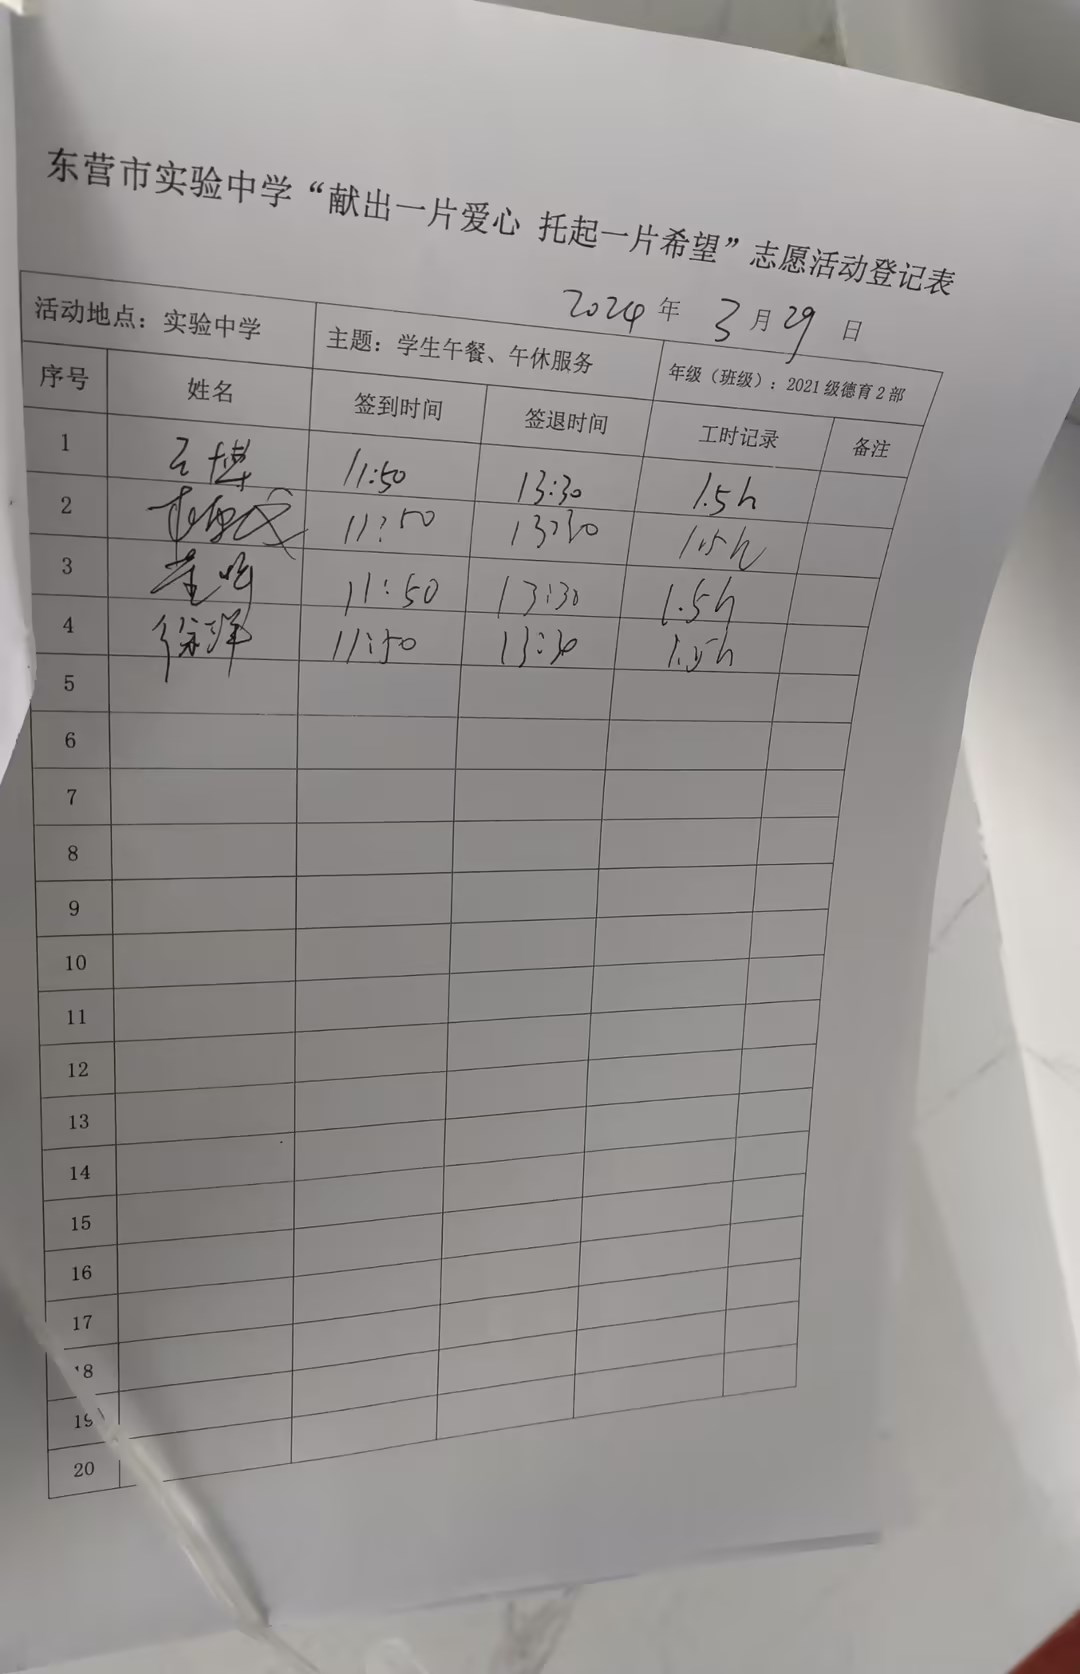 东营市实验中学“献出一片爱心 托起一片希望”志愿活动登记表
2024年3月29日
活动地点：实验中学 主题：学生午餐、午休服务 年级（班级）：2021级德育2部
序号 姓名 签到时间 签退时间 工时记录 备注
1 王博 11:50 13:30 1.5h
2 11:50 13:30 1.5h
3 11:50 13:30 1.5h
4 徐洋 11:50 13:30 1.5h
5
6
7
8
9
10
11
12
13
14
15
16
17
18
19
20